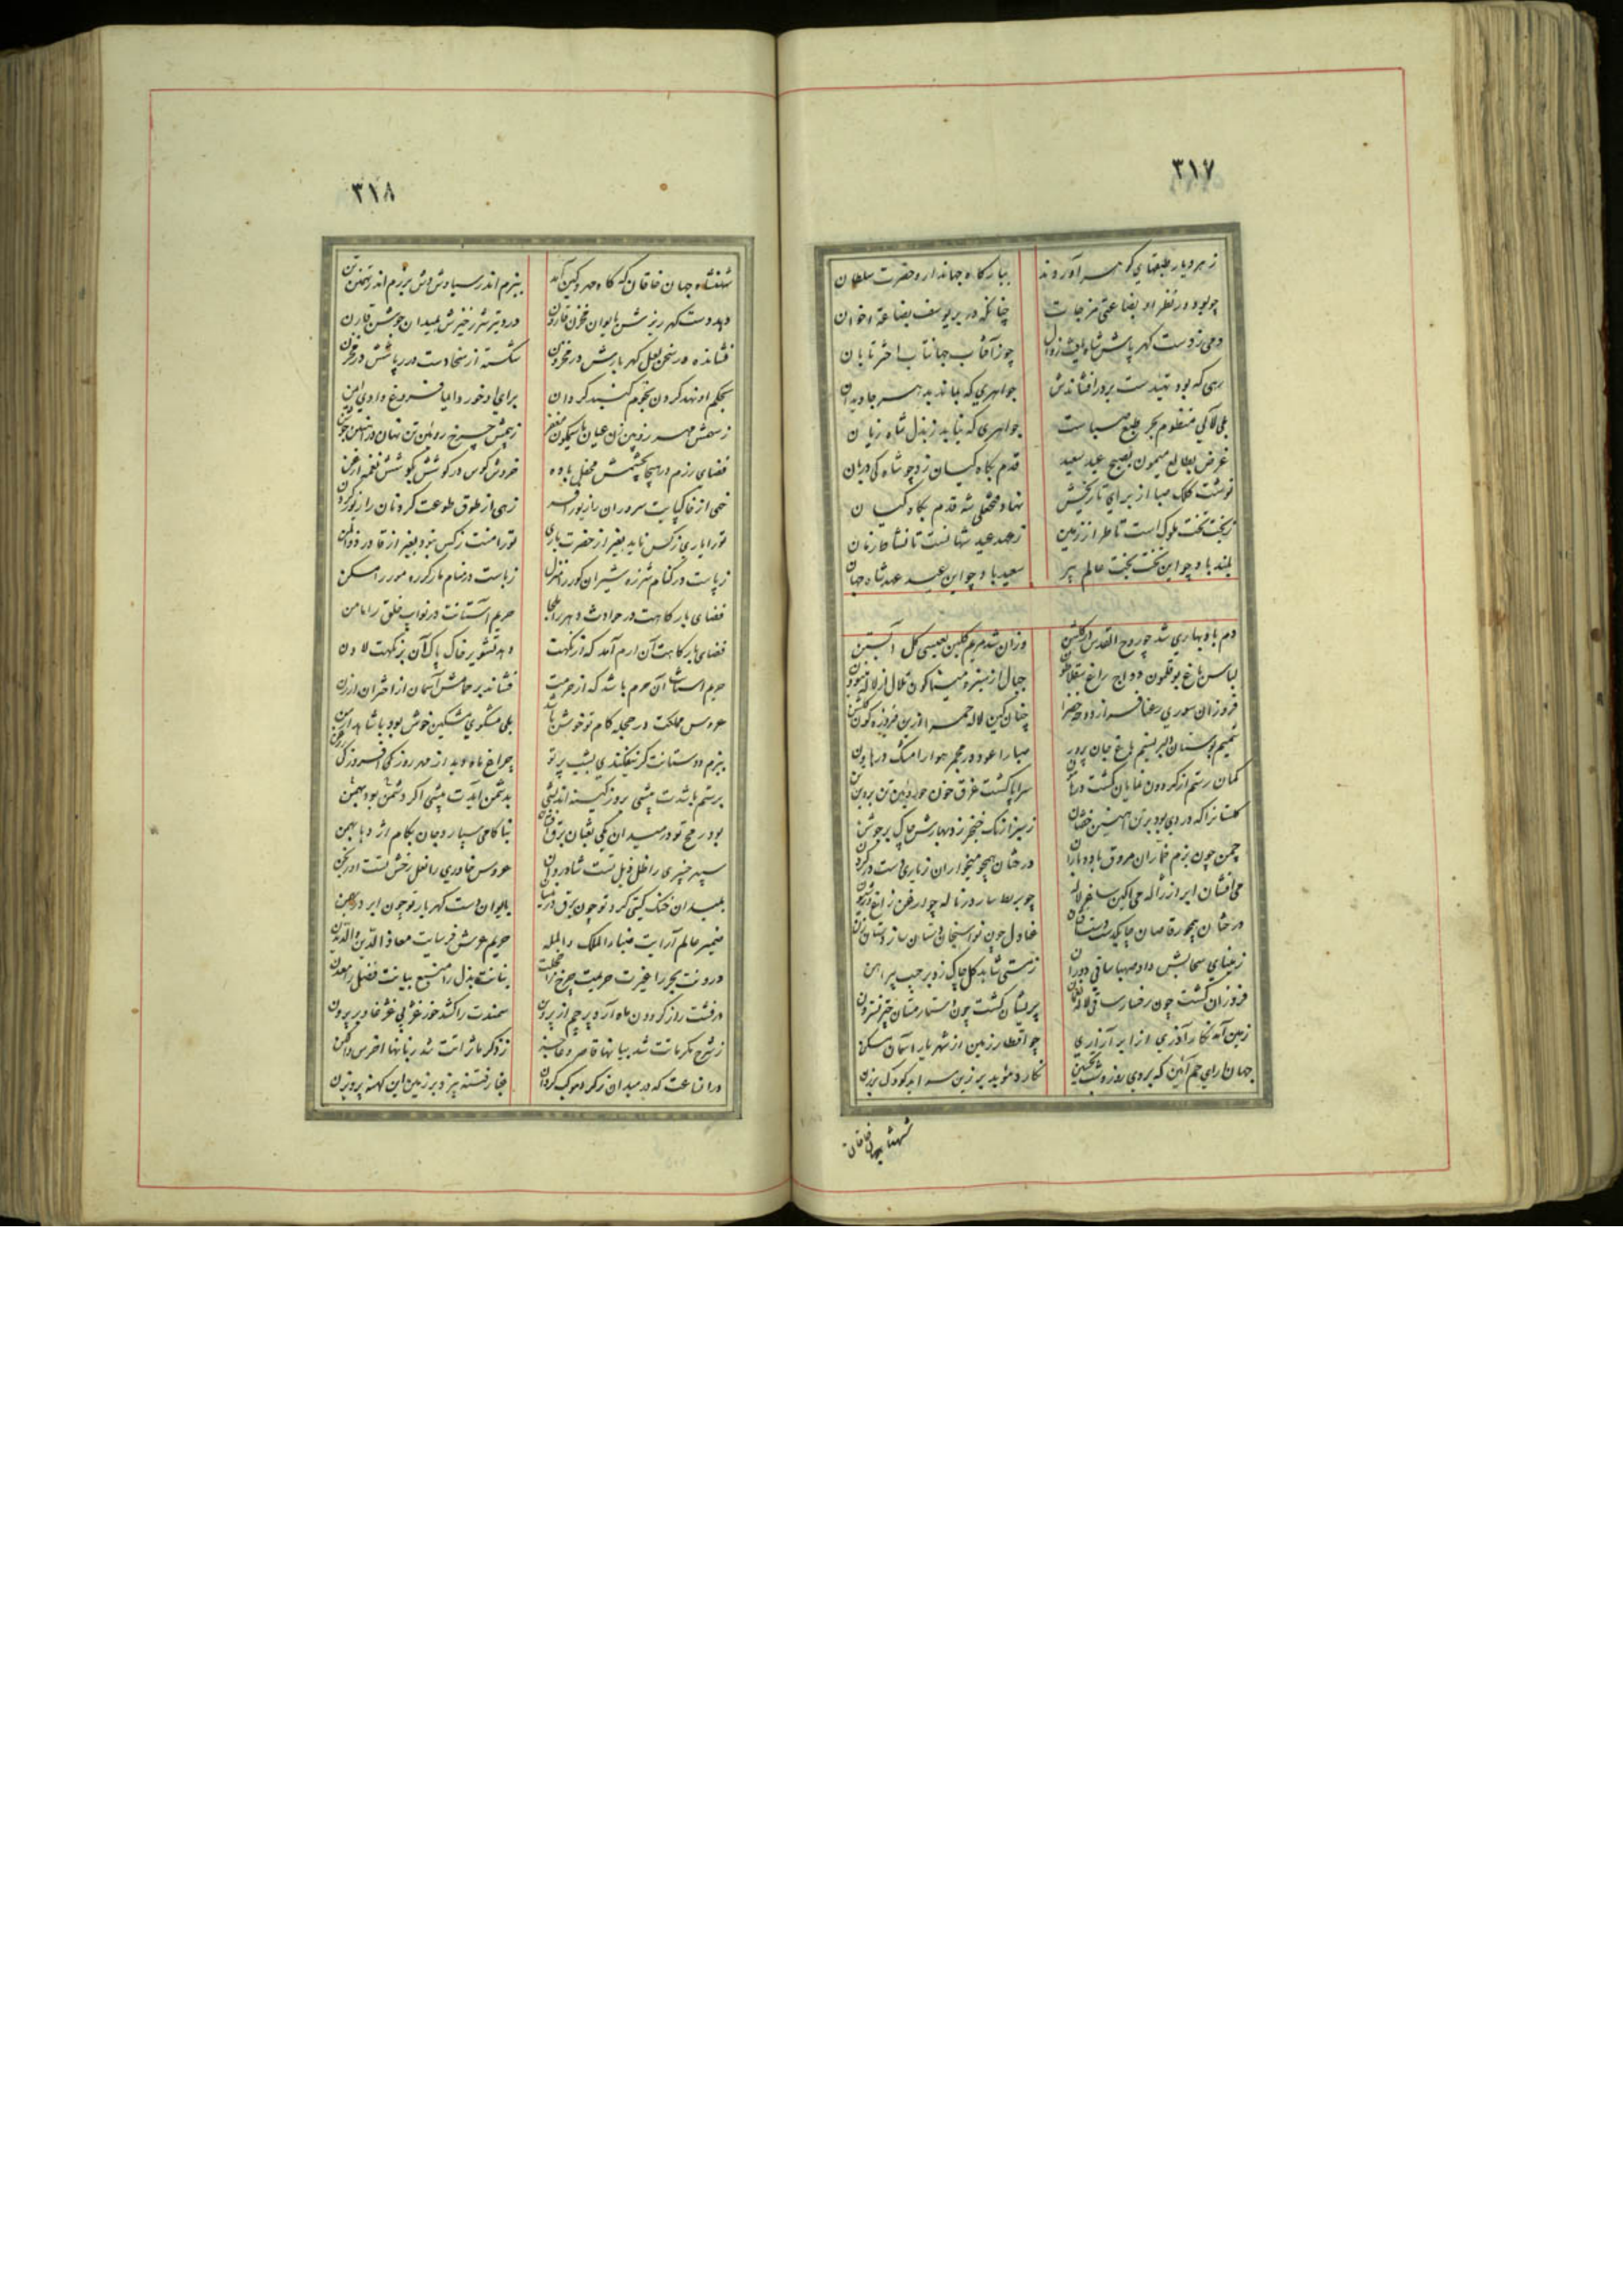 ۳۱۷
ز هر دیار طبقهای گوهر آوردند ببارگاه جهاندار و حضرت سلطان
چو بود در نظر او بضاعتی مزجات چنانکه در بر یوسف بضاعة اخوان
دمی ز دست گهر پاش شاه زوال چو ز آفتاب جهانتاب اختر تابان
رهی که بود تهیدست بر در افشاندش جواهری که بماند بدهر جاویدان
بلی لآلی منظوم بحر طبع صباست جواهری که نیابد ز بذل شاه زیان
غرض بطالع میمون بصبح عید سعید قدم بگاه کیان زد چو شاه کی دربان
نوشت کلک صبا از برای تاریخش نهاد محفلی شه قدم بگاه کیان
ز بخت تخت ملوک است تا طراز زمین ز عهد عید شهانست تا نشاط زمان
بلند باد چو این تخت بخت عالم پیر سعید باد چو این عید عهد شاه جهان
دم باد بهاری شد چو روح القدس در گلشن وزان شد مریم گلبن بعیسی گل آبستن
لباس باغ بوقلمون دواج راغ سقلاطون جبال از سبزه میناگون تلال از لاله
فروزان سوری رعنا فراز دوحه خضرا چنان کین لاله حمرا ازین فیروزه گون گلشن
شمیم بوستان دلبر نسیم باغ جان پرور صبا را عود در مجمر هوا را مشک در هاون
کمان رستم از گردون نمایان گشت سراپا گشت غرق خون چو رویین تن
گلستانرا که در دی بود بر تن آهنین خفتان ز سبزه از نک خنجر زد بهارش چاک بر جوشن
چمن چون بزم خماران مروق باده باران درختان همچو میخواران
می افشان ابر و از ژاله می آگین ساغر لاله چو بربط سار در ناله چو ارغن زاغ
درختان همچو رقاصان عنادل چون نواسنجان
ز مینای سحابش داد صهبا ساقی دوران ز مستی شاهد گل چاک زد بر جیب پیراهن
فروزان گشت چون رخسار ساقی لاله پریشان گشت چون دستار مستان چتر نسترون
زمین آمد نگار آذری از ابر آزاری چو اقطار زمین از شهریار آسمان مسکن
جهان دارای جم آئین که بر وی روز و شب
شهنشاه جهان خاقان
۳۱۸
شهنشاه جهان خاقان که گاه مهر و کین آمد ببزم اندر سیاوش وش برزم اندر تهمتن تن
دهد دست گهر ریزش بایوان مخزن قارون درد تیر شرر خیزش بمیدان جوشن قارن
فشانده در سخن لعل گهر بارش در مخزون شکسته از سخا دست درر پاشش در مخزن
بحکم او نهد گردن نجوم گنبد گردان برای او خورد
ز سهمش مهر زوبین زن عیان ز بیمش چرخ روئین تن نهان
فضای رزم در هیجا بچشمش محفل باده خروش کوس در کوشش بگوشش نغمه ارغن
خهی از خاکپایت سروران را زیور افسر زهی از طوق طوعت گردنان را زیور گردن
تو را یاری ز کس ناید بغیر از حضرت باری تو را منت ز کس نبود بغیر از قادر ذوالمن
ز پاست در کنام شرزه شیران گور را منزل ز باست در مشام مور را مسکن
فضای بارگاهت در حوادث دهر را ملجا حریم آستانت در نوایب خلق را مامن
فضای بارگاهت آن ارم آمد که از نکهت دهد تشویر خاک پاک آن بر نکهت لادن
حریم آستانت آن حرم باشد که از حرمت فشاند بر حمامش آسمان از اختران ارزن
عروس مملکت در حجله کام تو خوش باشد بلی مشکوی مشکین خوش بود با شاهد
ببزم دوستانت گر نیفکندی بشب پرتو چراغ ماه
برستم باشدت پیشی بروز کینه اندیشی بدشمن آیدت پیشی اگر دشمن بود بهمن
بود رمح تو در میدان یکی ثعبان بناکامی سپارد جان بکام اژدها بهمن
سپهر چنبری را ظل ذیل تست شادروان عروس خاوری را نعل رخش تست اورنجن
بمیدان خنک گیتی گرد تو چون برق بایوان دست گهر بار تو چون ابر
ضمیر عالم آرایت ضیاء الملک والمله حریم عرش فرسایت معاذ الدین
درونت بحر را غیرت حریمت چرخ را خجلت بنانت بذل را منبع بیانت فضل را معدن
درفشت راز گردون ماه آرد پرچم از پروین سمندت را کشد
ز شرح مکرمات شد بیانها قاصر و عاجز ز ذکر ماثراتت شد زبانها اخرس و الکن
در آنساعت که در میدان ز گرد موکب گردان غبار فتنه بیزد بر زمین این کهنه پرویزن